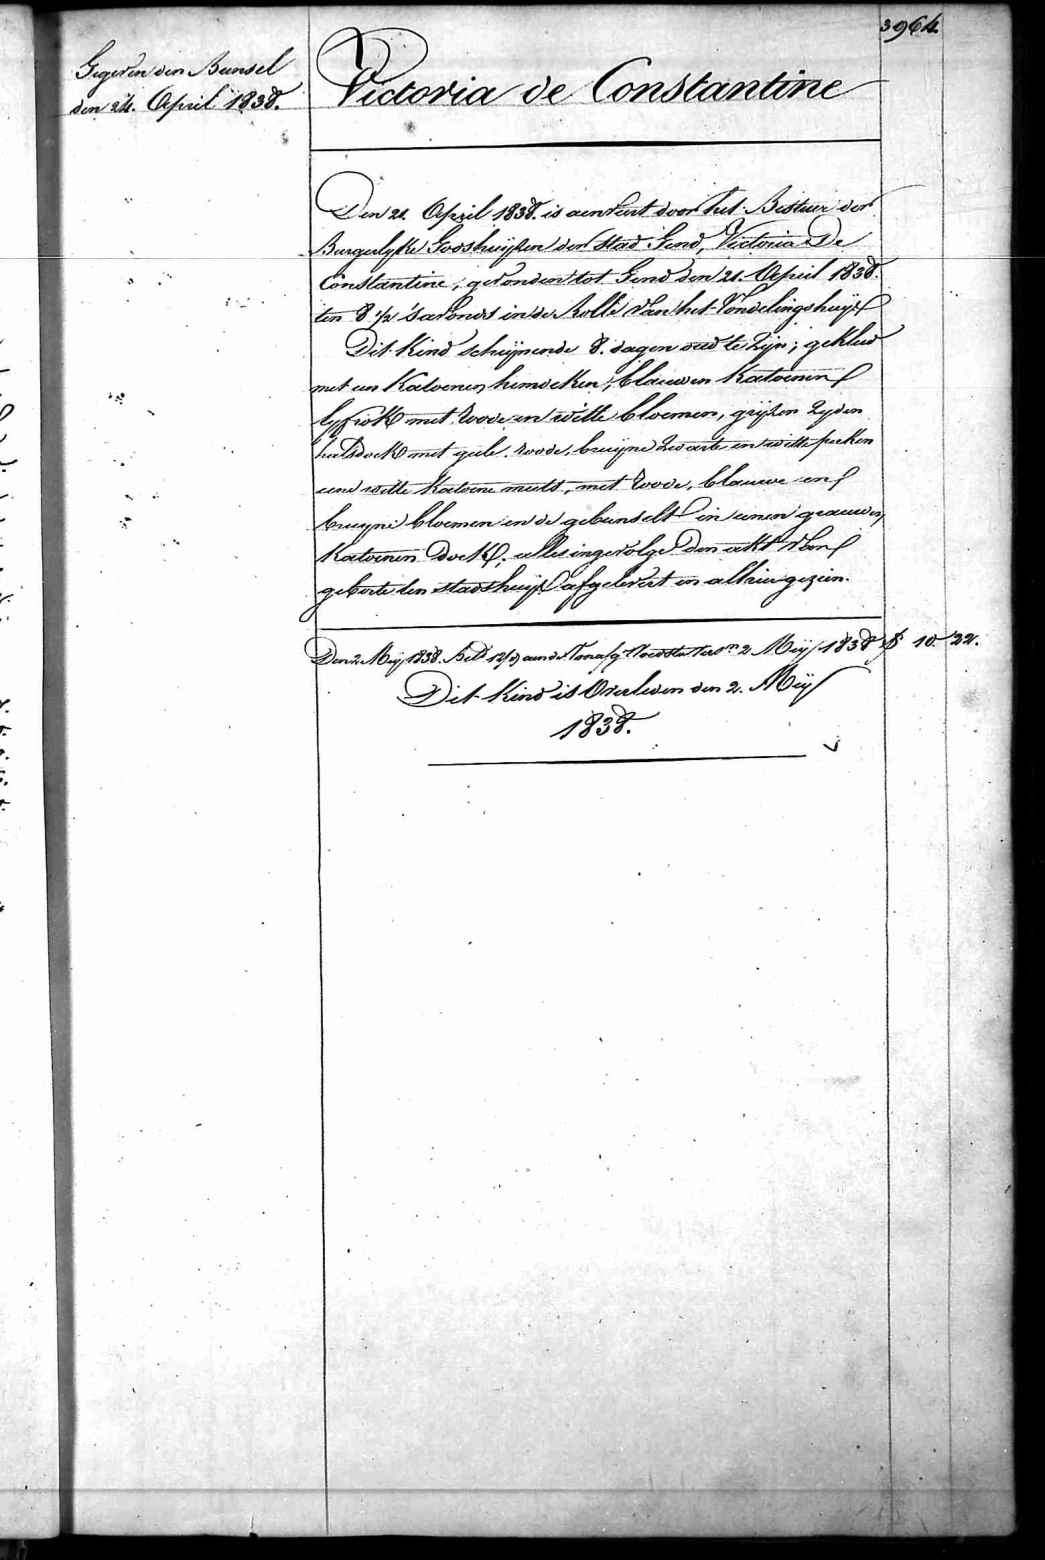 3964.
Gegeven den Bunsel
den 24. April 1838.
Victoria de Constantine
Den 21. April 1838. is aenveirt door het Bestuer der
Burgerlyke Godshuijsen der Stad Gend, Victoria De
Constantine, gevonden tot Gend den 21. April 1838.
ten 8 1/2 's avonds in de Rolle van het Vondelingshuijs
Dit kind schijnende 8. dagen oud te zijn; gekleed
met een Katoenen hemdeken, blauwen Katoenen
lyfrok met roode en witte bloemen, grijsen zyden
halsdoek met gele, roode, bruyne zwarte en witte perken
eene witte Katoene muts, met roode, blauwe en
bruyne bloemen en de gebunselt in eenen grauwen
Katoenen Doek; alles ingevolge den akt van
geborte ten stadshuijs afgelevert en alhier gezien.
Den 2 Meij 1838. Bet. aen de 2 Meij 1838 10 22.
Dit kind is Overleden den 2. Meij
1838.